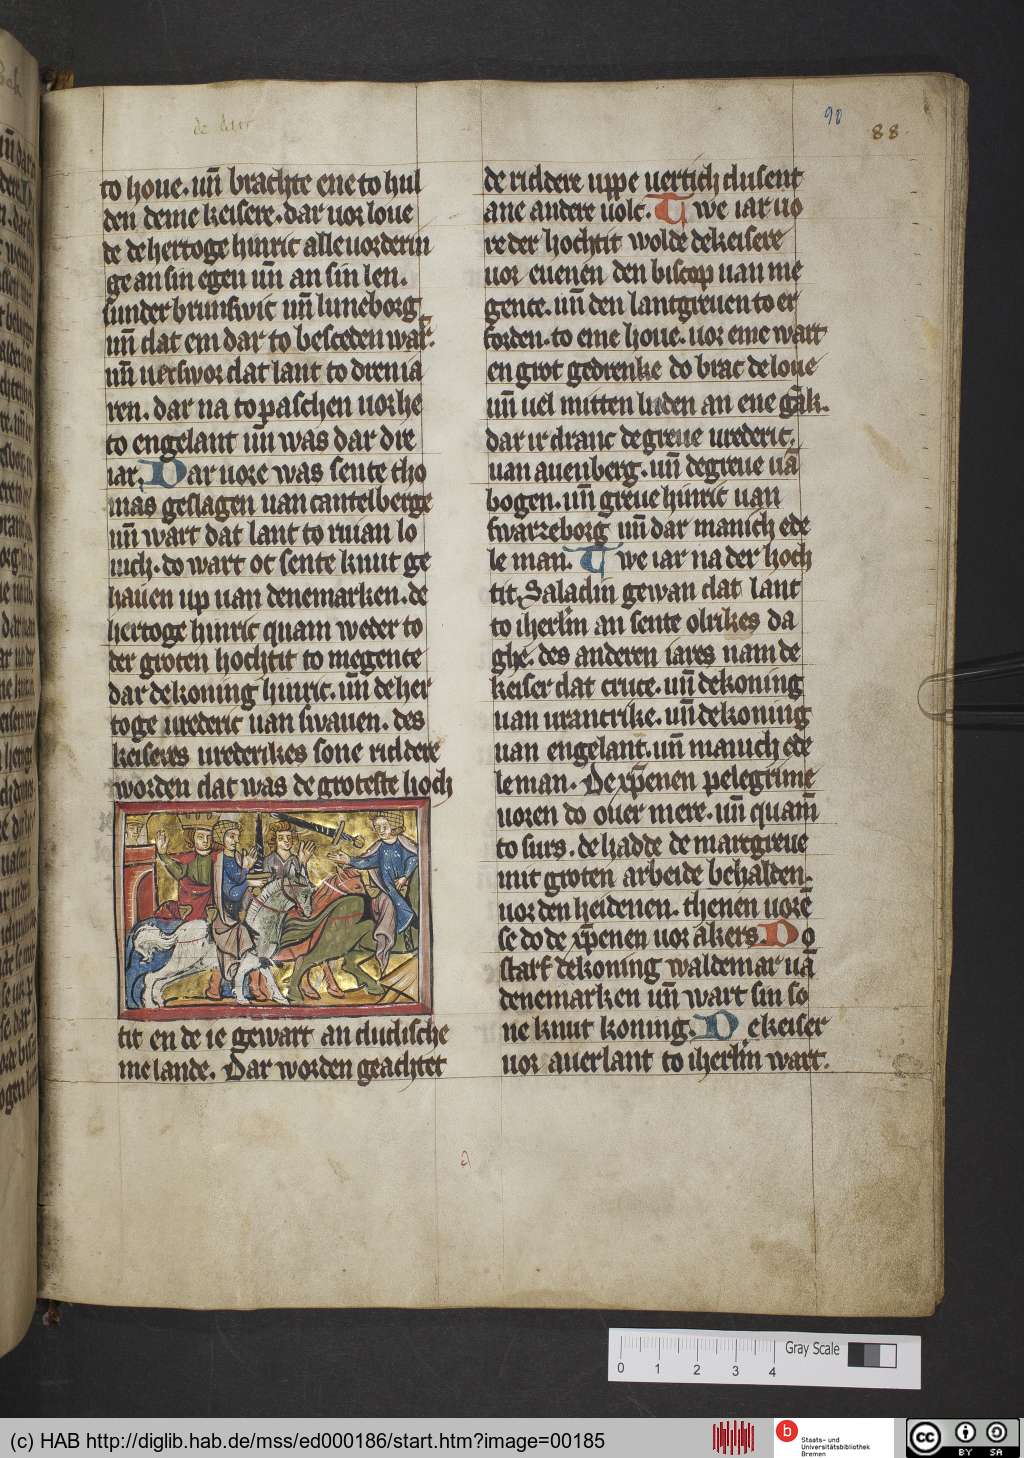 de dur
90
88
to houe. uñ brachte ene to hul
den deme keisere. dar uor loue
de de hertoge hinric alle uorderin
ge an sin egen uñ an sin len.
sunder brunswic uñ luneborg
uñ dat em dar to besceden was.
uñ uerswor dat lant to dren ia
ren. dar na to paschen uor he
to engelant uñ was dar dre
iar. Dar uore was sente tho
mas geslagen uan cantelberge
uñ wart dat lant to ruian lo
uich. do wart oc sente knut ge
hauen up uan denemarken. de
hertoge hinric quam weder to
der groten hochtit to megence
dar de koning hinric. uñ de her
toge urederic uan swauen. des
keiseres urederikes sone riddere
worden dat was de groteste hoch
tit en de ie gewart an dudische
me lande. Dar worden geachtet
de riddere uppe uertich dusent
ane andere uolc. Twe iar uo
re der hochtit wolde de keisere
uor euenen den biscop uan me
gence. uñ den lantgreuen to er
forden. to eme houe. uor eme wart
en grot gedrenke do brac de loue
uñ uel mitten luden an ene gāk.
dar ir dranc de greue urederic.
uan auenberg. uñ de greue uā
bogen. uñ greue hinric uan
swarzeborg uñ dar manich ede
le man. Twe iar na der hoch
tit, Saladin gewan dat lant
to iherl'm an sente olrikes da
ghe. des anderen iares nam de
keiser dat cruce. uñ de koning
uan urancrike. uñ de koning
uan engelant. uñ manich ede
le man. De xp̄enen pelegrime
uoren do ouer mere. uñ quam̄
to surs. de hadde de marcgreue
mit groten arbeide behalden.
uor den heidenen. thenen uorē
se do de xp̄enen uor akers. Do
starf de koning waldemar uā
denemarken uñ wart sin so
ne knut koning. De keiser
uor auer lant to iherl'm wart.
a
0 1 2 3 4
Gray Scale
(c) HAB http://diglib.hab.de/mss/ed000186/start.htm?image=00185
b
Staats- und
Universitätsbibliothek
Bremen
cc
BY SA